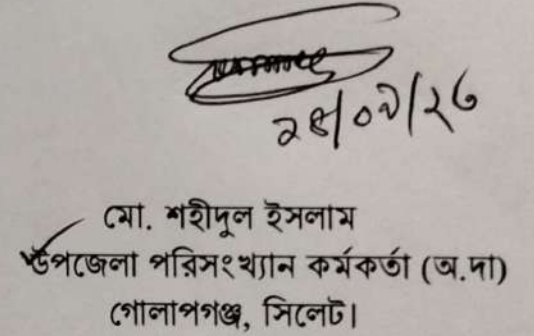 ২৪/০২/২৬
মো. শহীদুল ইসলাম
উপজেলা পরিসংখ্যান কর্মকর্তা (অ.দা)
গোলাপগঞ্জ, সিলেট।